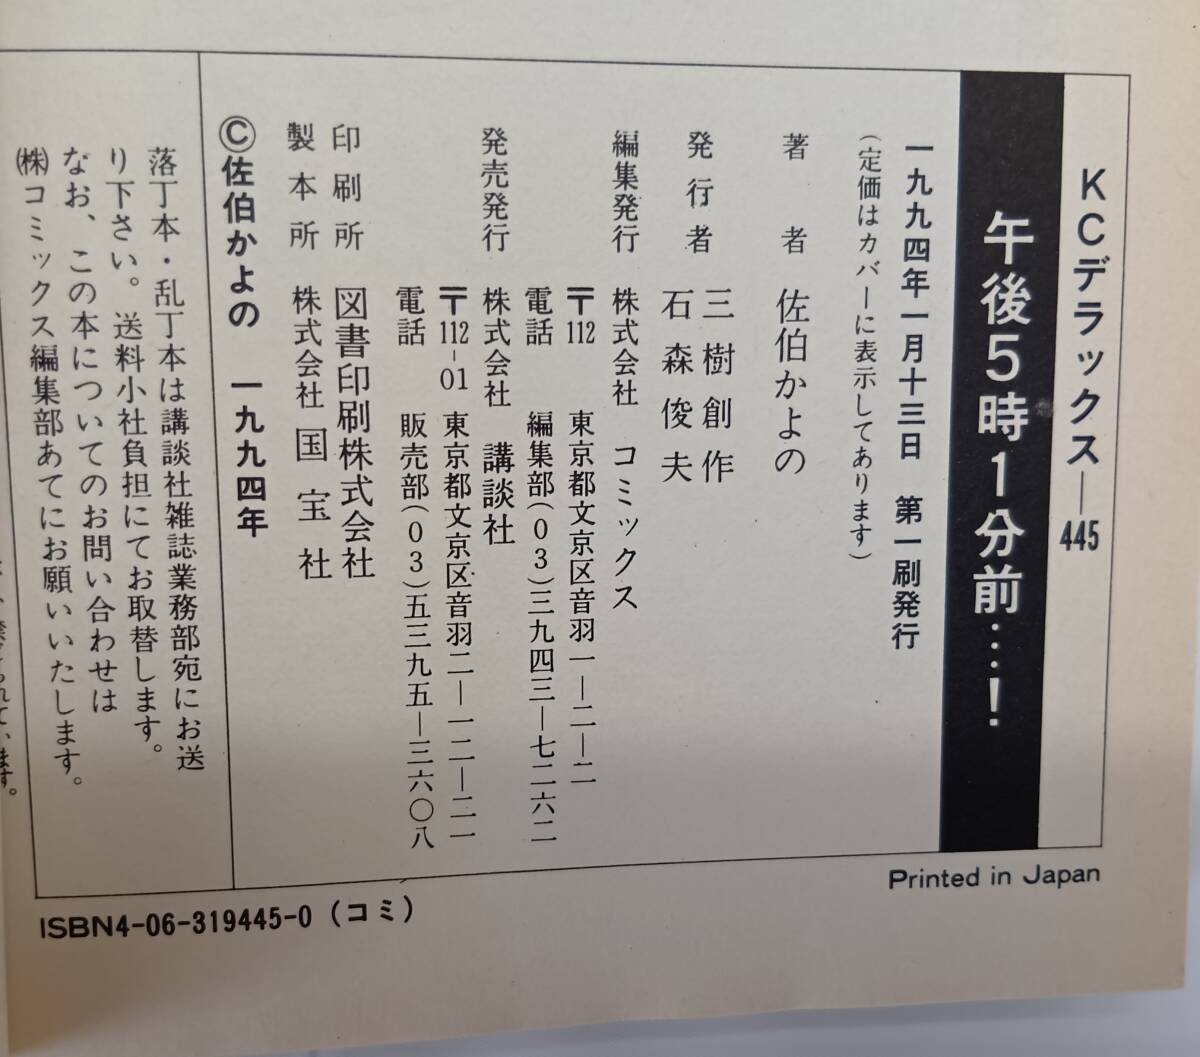 KCデラックス—445
午後5時1分前…!
一九九四年一月十三日 第一刷発行
(定価はカバーに表示してあります)
著者 佐伯かよの
発行者 三樹創作
石森俊夫
編集発行 株式会社 コミックス
〒112 東京都文京区音羽一—二—二
電話 編集部(03)三九四三—七二六二
発売発行 株式会社 講談社
〒112-01 東京都文京区音羽二—一二—二一
電話 販売部(03)五三九五—三六〇八
印刷所 図書印刷株式会社
製本所 株式会社国宝社
©佐伯かよの 一九九四年
落丁本・乱丁本は講談社雑誌業務部宛にお送
り下さい。送料小社負担にてお取替します。
なお、この本についてのお問い合わせは
㈱コミックス編集部あてにお願いいたします。
られています。
Printed in Japan
ISBN4-06-319445-0(コミ)